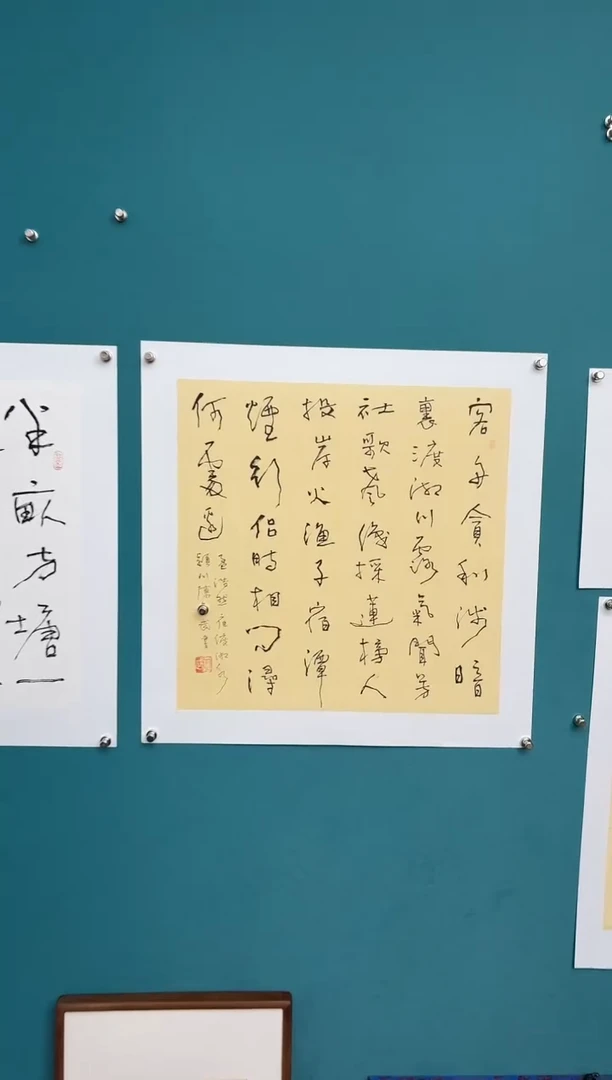 客舟貪利涉暗
裏渡湘川露氣聞芳
杜歌聲識採蓮榜人
投岸火漁子宿潭
煙行侶時相問潯
何處邊
孟浩然夜渡湘水
川陳書
半畝方塘一